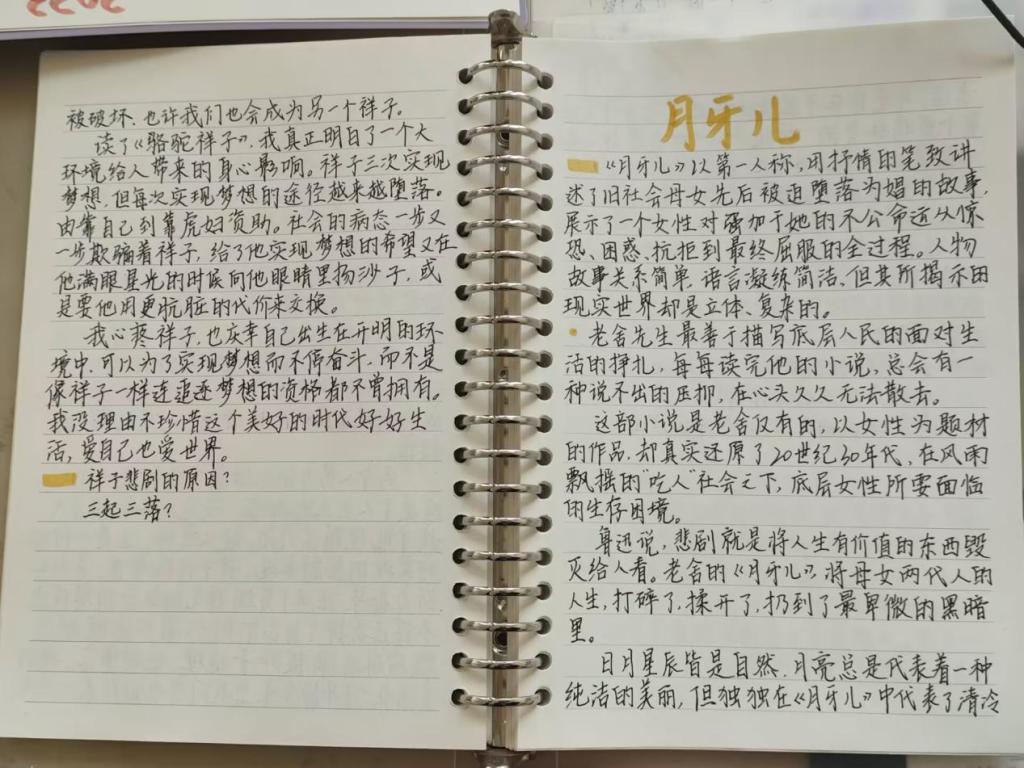 被破坏、也许我们也会成为另一个祥子。
读了《骆驼祥子》，我真正明白了一个大
环境给人带来的身心影响。祥子三次实现
梦想，但每次实现梦想的途径越来越堕落。
由靠自己到靠虎妞资助。社会的病态一步又
一步欺骗着祥子，给了他实现梦想的希望又在
他满眼星光的时候向他眼睛里扬沙子，或
是要他用更肮脏的代价来交换。
我心疼祥子，也庆幸自己出生在开明的环
境中，可以为了实现梦想而不停奋斗，而不是
像祥子一样连追逐梦想的资格都不曾拥有。
我没理由不珍惜这个美好的时代好好生
活，爱自己也爱世界。
祥子悲剧的原因？
三起三落？
月牙儿
《月牙儿》以第一人称，用抒情的笔致讲
述了旧社会母女先后被迫堕落为娼的故事，
展示了一个女性对强加于她的不公命运从惊
恐、困惑、抗拒到最终屈服的全过程。人物
故事关系简单，语言凝练简洁、但其所揭示的
现实世界却是立体、复杂的。
老舍先生最善于描写底层人民的面对生
活的挣扎，每每读完他的小说，总会有一
种说不出的压抑，在心头久久无法散去。
这部小说是老舍仅有的，以女性为题材
的作品，却真实还原了20世纪30年代，在风雨
飘摇的“吃人”社会之下，底层女性所要面临
的生存困境。
鲁迅说，悲剧就是将人生有价值的东西毁
灭给人看。老舍的《月牙儿》，将母女两代人的
人生，打碎了，揉开了，扔到了最卑微的黑暗
里。
日月星辰皆是自然，月亮总是代表着一种
纯洁的美丽，但独独在《月牙儿》中代表了清冷